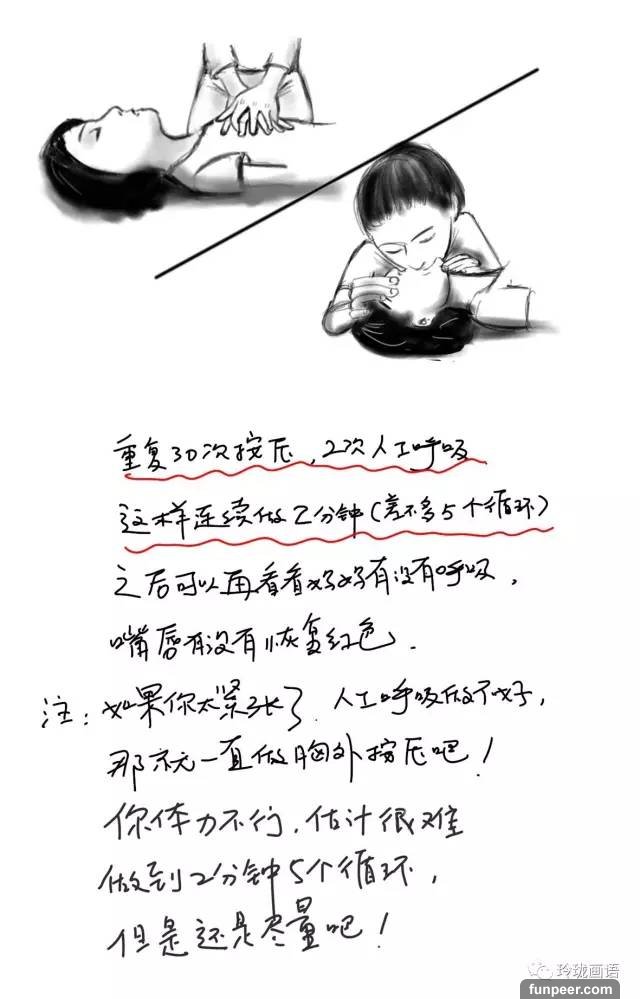 重复30次按压，2次人工呼吸
这样连续做2分钟（差不多5个循环）
之后可以再看看妈妈有没有呼吸，
嘴唇有没有恢复红色.
注：如果你太紧张了.人工呼吸做不好，
那就一直做胸外按压吧！
你体力不行，估计很难
做到2分钟5个循环，
但是还是尽量吧！
玲珑画语
funpeer.com